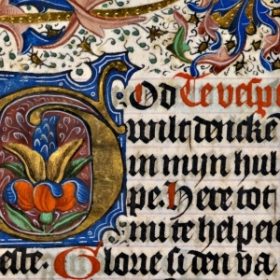 GOd Te vesp
wilt dencke
in mijn hul
pe. Here tot
mi te helpen
este. Glorie si den va